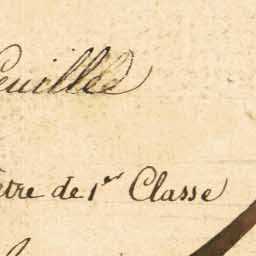 euilles
ètre de 1er Classe